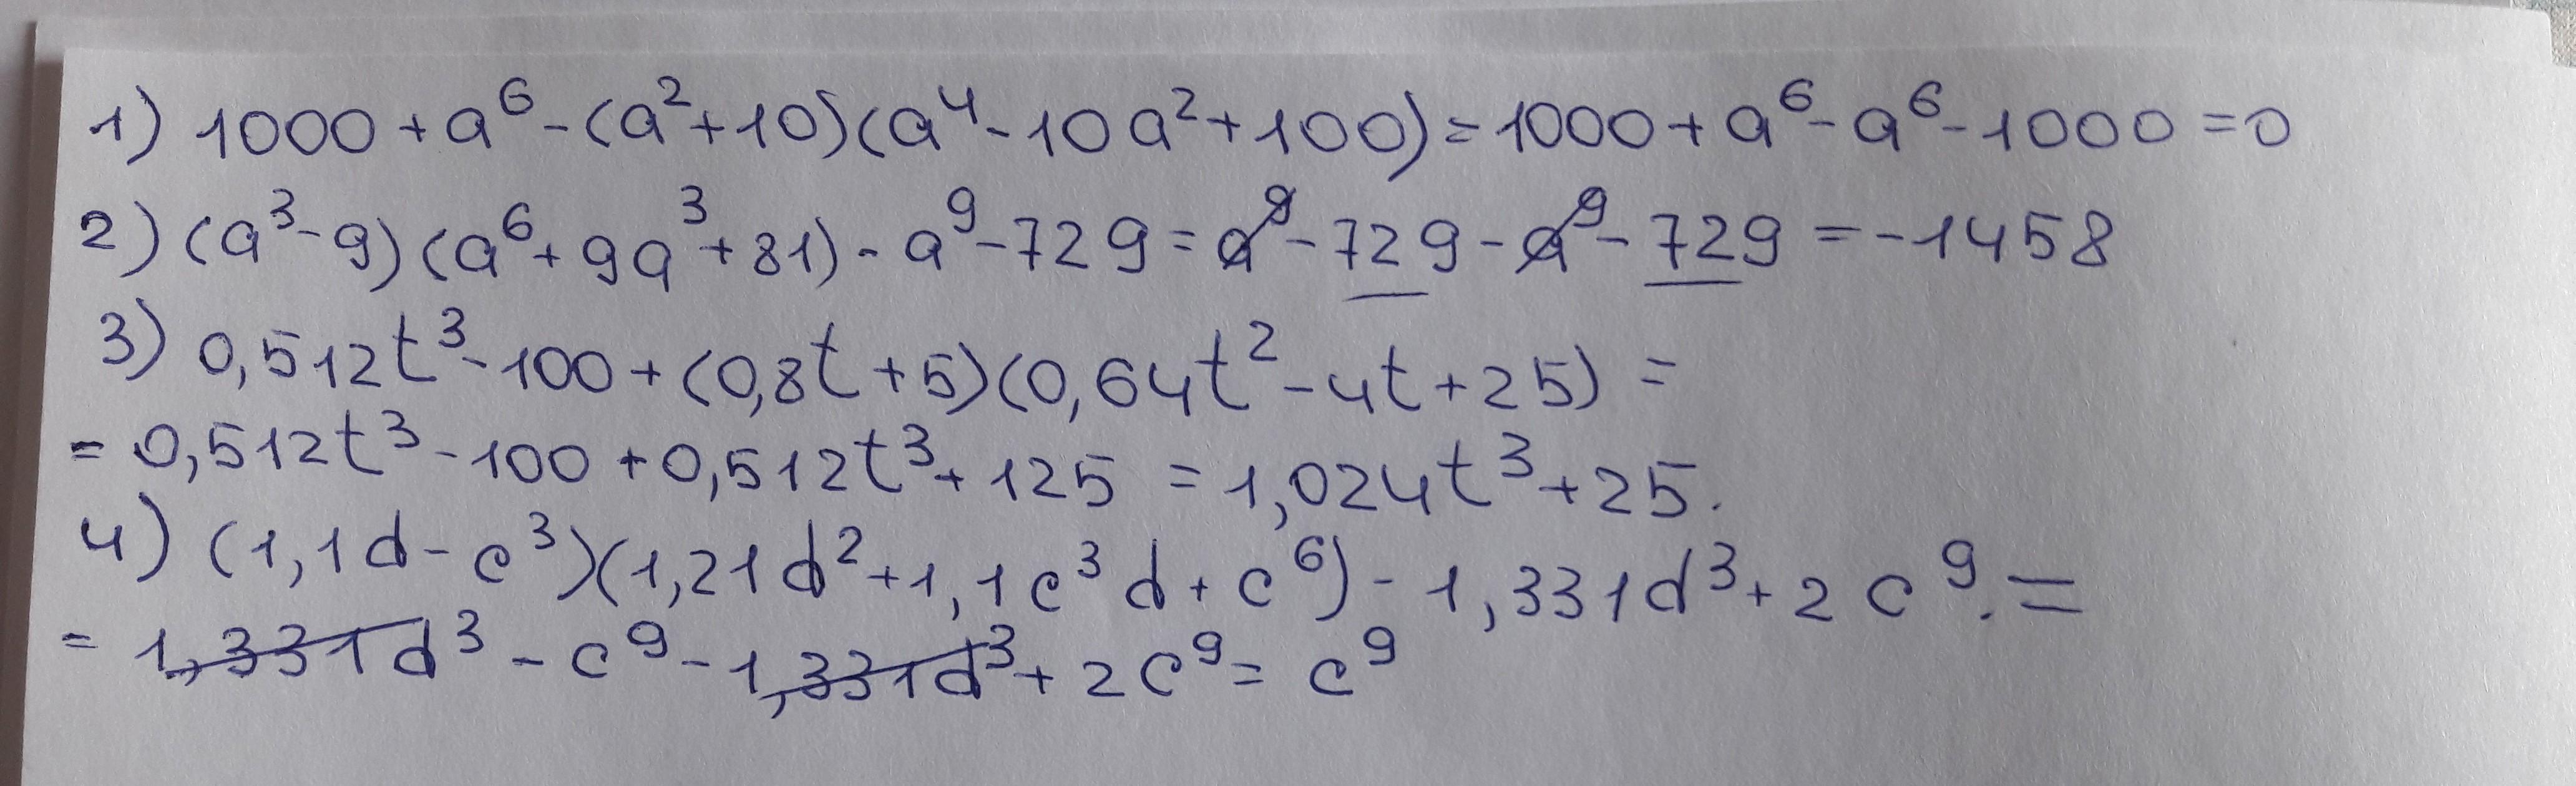 1) 1000 + a⁶ - (a² + 10)(a⁴ - 10a² + 100) = 1000 + a⁶ - a⁶ - 1000 = 0
2) (a³ - 9)(a⁶ + 9a³ + 81) - a⁹ - 729 = a⁹ - 729 - a⁹ - 729 = -1458
3) 0,512t³ - 100 + (0,8t + 5)(0,64t² - 4t + 25) =
= 0,512t³ - 100 + 0,512t³ + 125 = 1,024t³ + 25.
4) (1,1d - c³)(1,21d² + 1,1c³d + c⁶) - 1,331d³ + 2c⁹. =
= 1,331d³ - c⁹ - 1,331d³ + 2c⁹ = c⁹